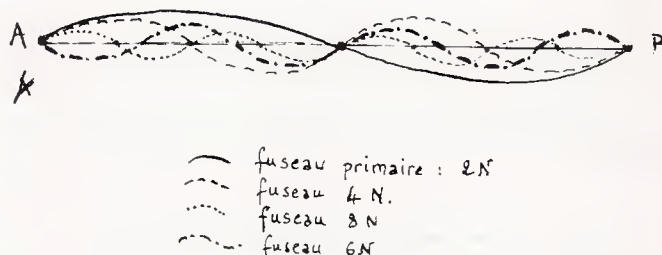 A P
A
fuseau primaire : 2N
fuseau 4 N.
fuseau 8N
fuseau 6N